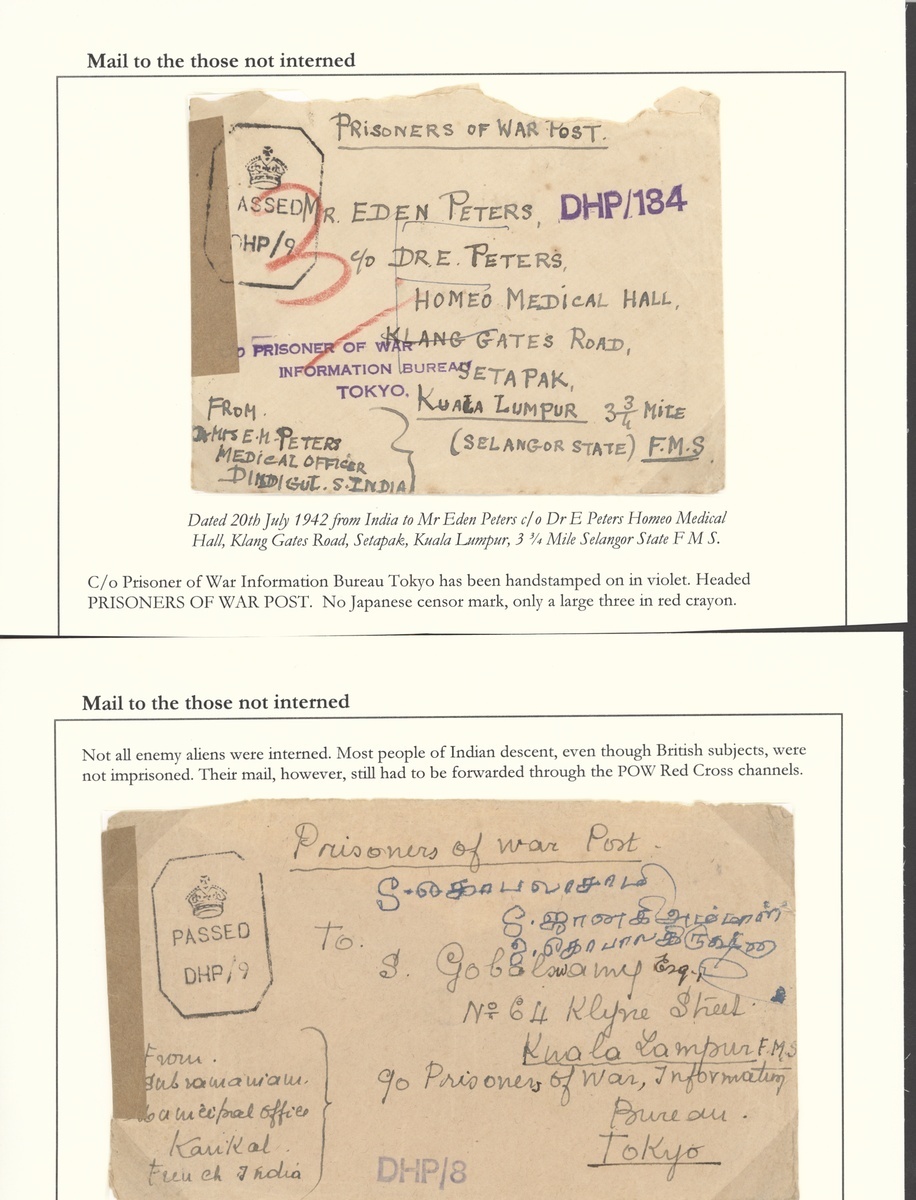 Mail to the those not interned
PRISONERS OF WAR POST.
PASSED
DHP/9
3
MR. EDEN PETERS,
DHP/184
c/o DR. E. PETERS,
HOMEO MEDICAL HALL,
KLANG GATES ROAD,
SETAPAK,
KUALA LUMPUR 3 3/4 MILE
(SELANGOR STATE) F.M.S.
PRISONER OF WAR
INFORMATION BUREAU
TOKYO.
FROM.
MRS E.H. PETERS
MEDICAL OFFICER
DINDIGUL. S. INDIA
Dated 20th July 1942 from India to Mr Eden Peters c/o Dr E Peters Homeo Medical
Hall, Klang Gates Road, Setapak, Kuala Lumpur, 3 ¾ Mile Selangor State F M S.
C/o Prisoner of War Information Bureau Tokyo has been handstamped on in violet. Headed
PRISONERS OF WAR POST. No Japanese censor mark, only a large three in red crayon.
Mail to the those not interned
Not all enemy aliens were interned. Most people of Indian descent, even though British subjects, were
not imprisoned. Their mail, however, still had to be forwarded through the POW Red Cross channels.
Prisoners of war Post.
PASSED
DHP/9
To.
S. Gobalswamy Esq.,
No 64 Klyne Street.
Kuala Lampur F.M.S
c/o Prisoners of War, Information
Bureau.
Tokyo
From.
Subramaniam.
Municipal office
Karikal
French India
DHP/8